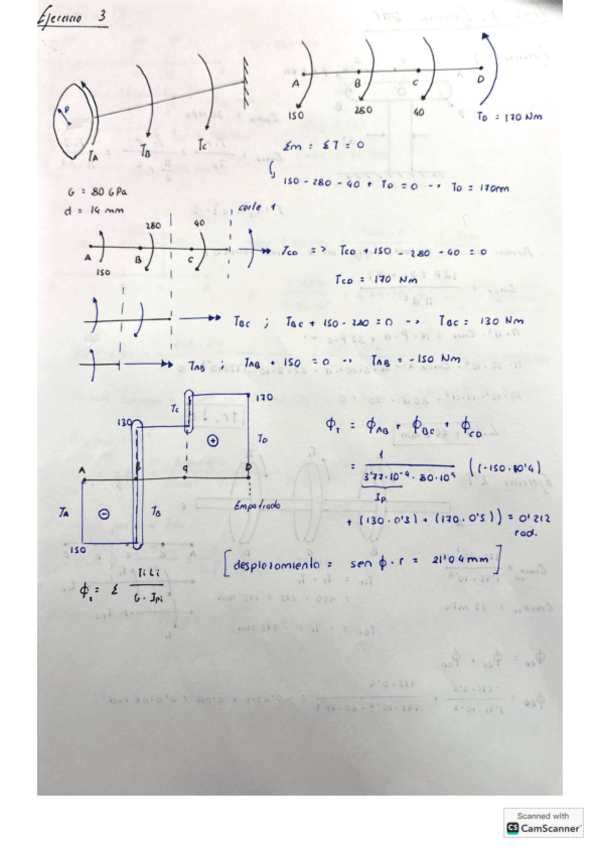 Ejercicio 3
P
TA
TB
TC
A
B
C
D
150
280
40
TD = 170 Nm
Σm = ΣT = 0
150 - 280 - 40 + TD = 0 → TD = 170 Nm
G = 80 GPa
d = 14 mm
corte 1
280
40
A
B
C
150
TCD => TCD + 150 - 280 - 40 = 0
TCD = 170 Nm
TBC ; TBC + 150 - 280 = 0 → TBC = 130 Nm
TAB ; TAB + 150 = 0 → TAB = -150 Nm
170
TC
130
TD
A
B
C
D
Empotrado
TA
TB
150
ϕT = ϕAB + ϕBC + ϕCD
= 1 / 3'77·10⁻⁹ · 80·10⁹ ((-150·0'4)
Ip
+ (130·0'3) + (170·0'5)) = 0'212 rad.
[desplazamiento = sen ϕ · r = 21'04 mm]
ϕt = Σ Ti Li / G · Ipi
Scanned with
CS CamScanner